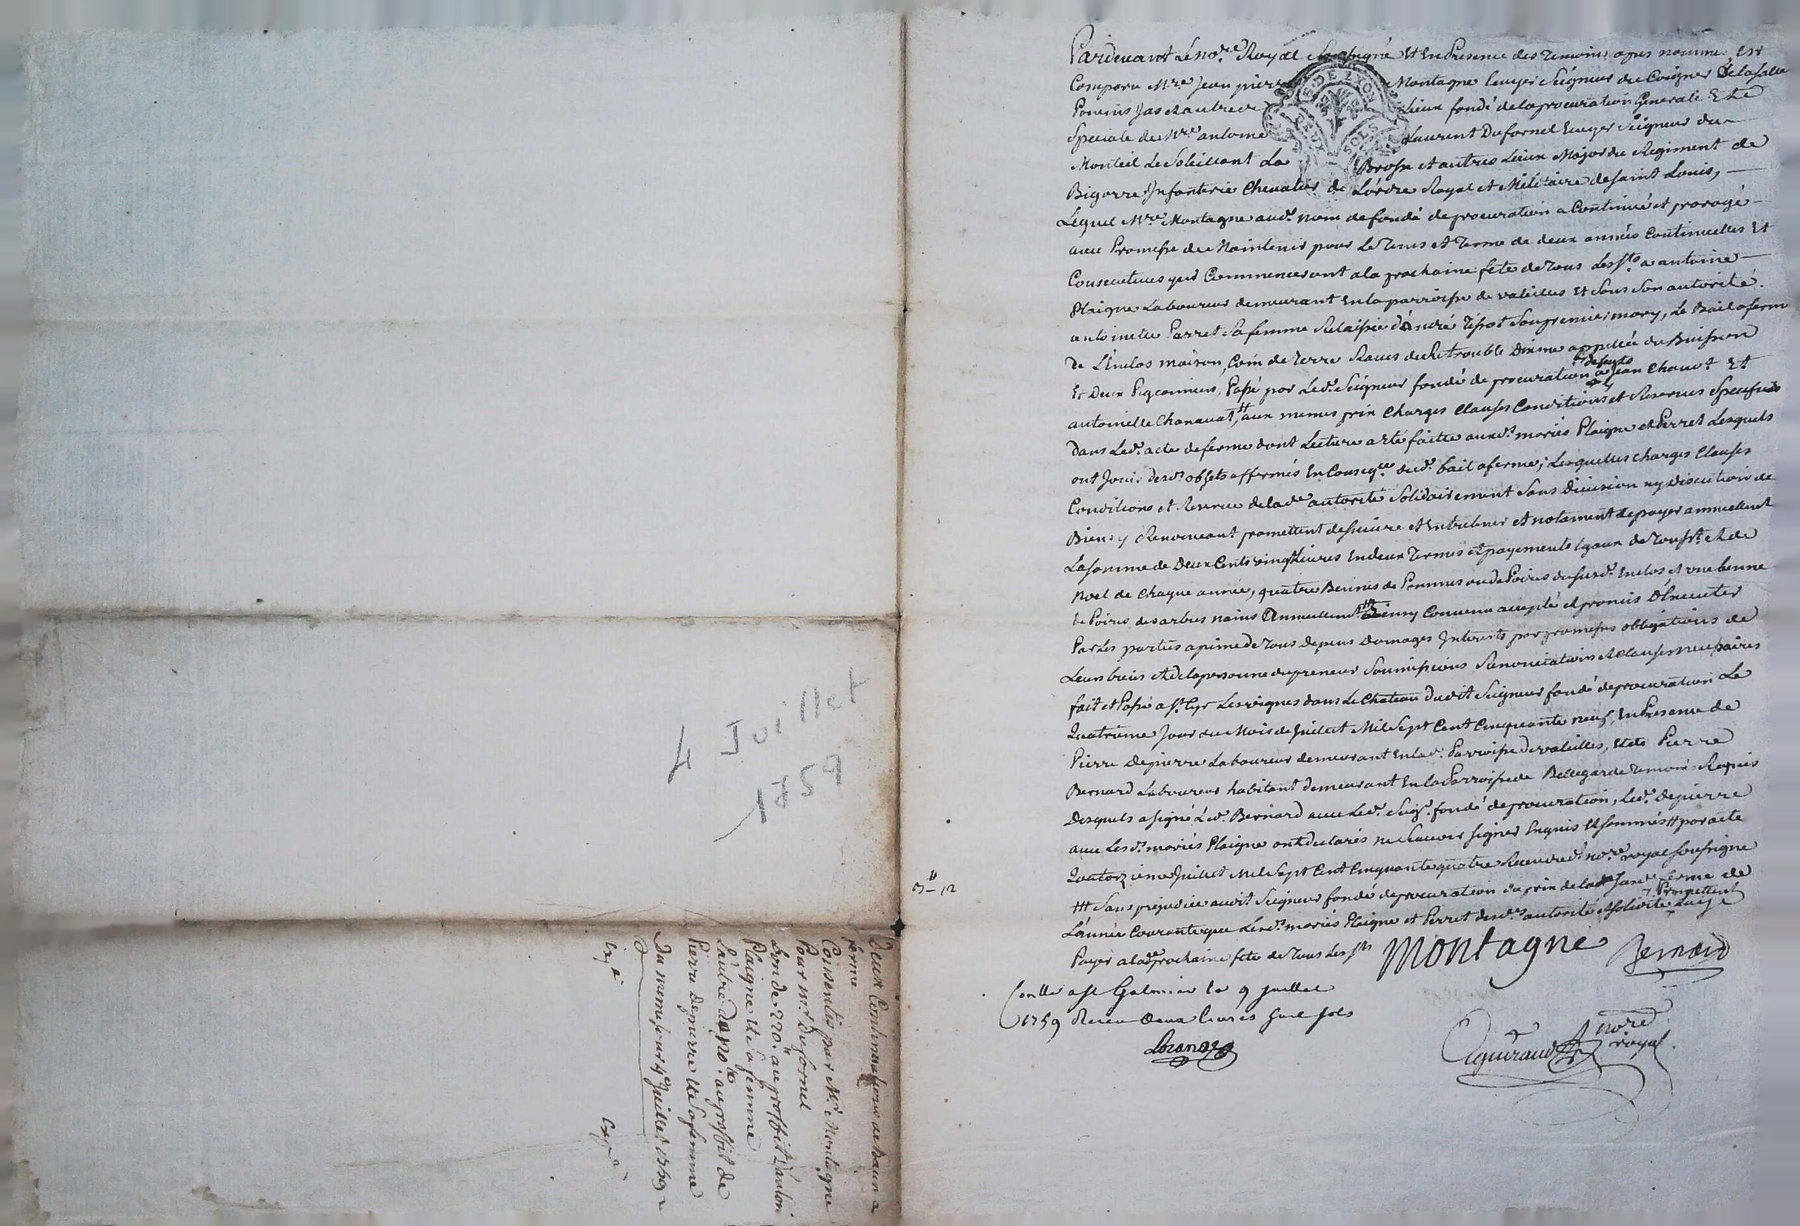 Pardevant Le no.re Royal Soubsigné Et En Presence des Temoins apres nommés Est
Comparu M.re Jean pierre Montagne Ecuyer Seigneur de Poigner De la Salle
Lieux fondé de la procuration Generale Et
Speciale de M.re antoine Laurent Dufornel Ecuyer Seigneur du
Monteil Le Soleillant La Brosse et autres Lieux Major du Regiment de
Bigorre Infanterie Chevalier de L'ordre Royal et Militaire de Saint Louis,
Lequel M.re Montagne aud. nom de fondé de procuration a Continué et prorogé
avec Promesse de Maintenir pour Le Tems et Terme de deux années Continuelles Et
Consecutives qui Commenceront a la prochaine fête de Tous Les S.ts a antoine
Plaigne Laboureur demeurant En la parroisse de valeilles Et Sous Son autorité
antoinette Parret Sa femme Relaissée d'andré Tissot Son premier mary, Le Bail a ferme
de L'Enclos maison, Coin de Terre Raves de Retrouble Dixme appellée du Buisson
Et Deux Pigeonniers, Passé par Led. Seigneur fondé de procuration a defunts Jean Chavot Et
antoinette Chanavat, aux memes prix Charges Clauses Conditions et Reserves Specifiés
Dans Led. acte de ferme dont Lecture a eté faitte auxd. mariés Plaigne et Perret Lesquels
ont Joui desd. objets affermés En Conseq.ce dud. bail a ferme; Lesquelles charges Clauses
Conditions et Reserve de lade autorité Solidairement Sans Division ny Discution de
Biens y Renonceant promettent de Suivre et Entretenir et notament de payer annuellement
La Somme de Deux Cents vingt Livres En deux Termes et payements Egaux de Touss.t et de
Noel de Chaque année, quatre Bennes de Pommes ou de Poires du Susd. Enclos et une benne
de Poires des arbres nains annuellement Ainsy Convenu accepté et promis D'Executer
Par Les parties a peine de Tous Depens Domages Interets par promesses obligations de
Leurs biens et de la personne du preneur Soumissions Renonciations et Clauses necessaires
fait et Passé a S.t Cyr Les vignes dans Le Chateau dudit Seigneur fondé de procuration Le
Quatrieme Jour du Mois de Juillet Mil Sept Cent Cinquante neuf, En Presence de
Pierre Depierre Laboureur demeurant En lad. Parroisse de valeilles, Et de Pierre
Bernard Laboureur habitant demeurant En la Parroisse de Bellegarde Temoins Requis
Desquels a signé Led. Bernard avec Led. Seig.r fondé de procuration, Led. Depierre
avec Lesd. mariés Plaigne ont declarés ne Scavoir signer Enquis Et sommés # par acte
Quatorzieme Juillet Mil Sept Cent Cinquante quatre Receu dud. no.re royal soussigné
### Sans prejudice audit Seigneur fondé de procuration du prix de lade ferme de
L'année Courante que Lesd. mariés Plaigne et Perret desd. autorité et Solidité Promettent
Payer a lade prochaine fete de Tous Les S.ts
Montagne Bernard
Conllé a S.t Galmier le 9 juillet
1759 Receu deux livres huit sols
no.re
royal
4 Juillet
1759
Deux Continuations de Baux a
ferme
Consentis par M.r Montagne
Pour M.r Dufornel
L'un de 220.# au proffit d'antoine
Plaigne Et Sa femme
L'autre de au proffit de
Pierre Depierre Et Sa femme
Du meme jour 4 Juillet 1759